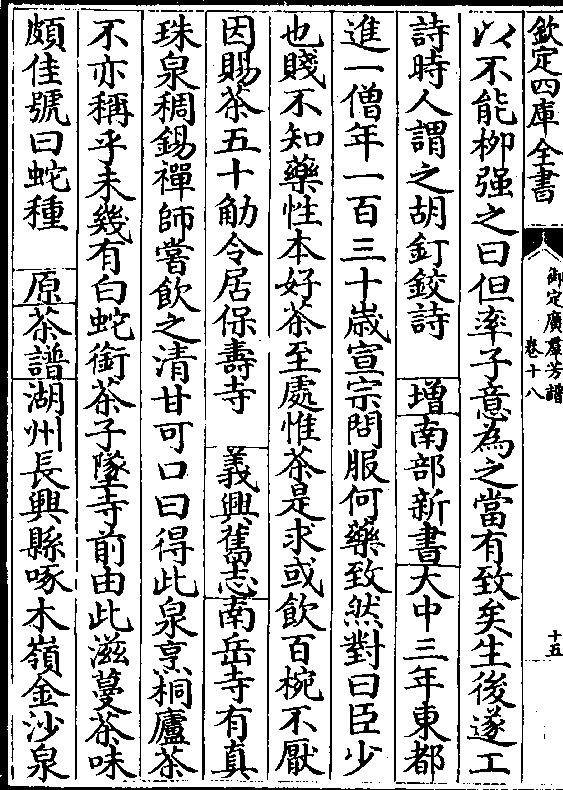 欽定四庫全書
御定廣羣芳譜
卷十八
十五
以不能柳强之曰但率子意為之當有致矣生後遂工
詩時人謂之胡釘鉸詩 增南部新書大中三年東都
進一僧年一百三十歲宣宗問服何藥致然對曰臣少
也賤不知藥性本好茶至處惟茶是求或飲百椀不厭
因賜茶五十觔令居保壽寺 義興舊志南岳寺有真
珠泉稠錫禪師嘗飲之清甘可口曰得此泉烹桐廬茶
不亦稱乎未幾有白蛇銜茶子墜寺前由此滋蔓茶味
頗佳號曰蛇種 原茶譜湖州長興縣啄木嶺金沙泉